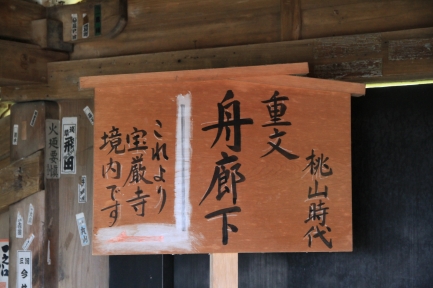 桃山時代
重文
舟廊下
これより
宝厳寺
境内です
火廼要慎